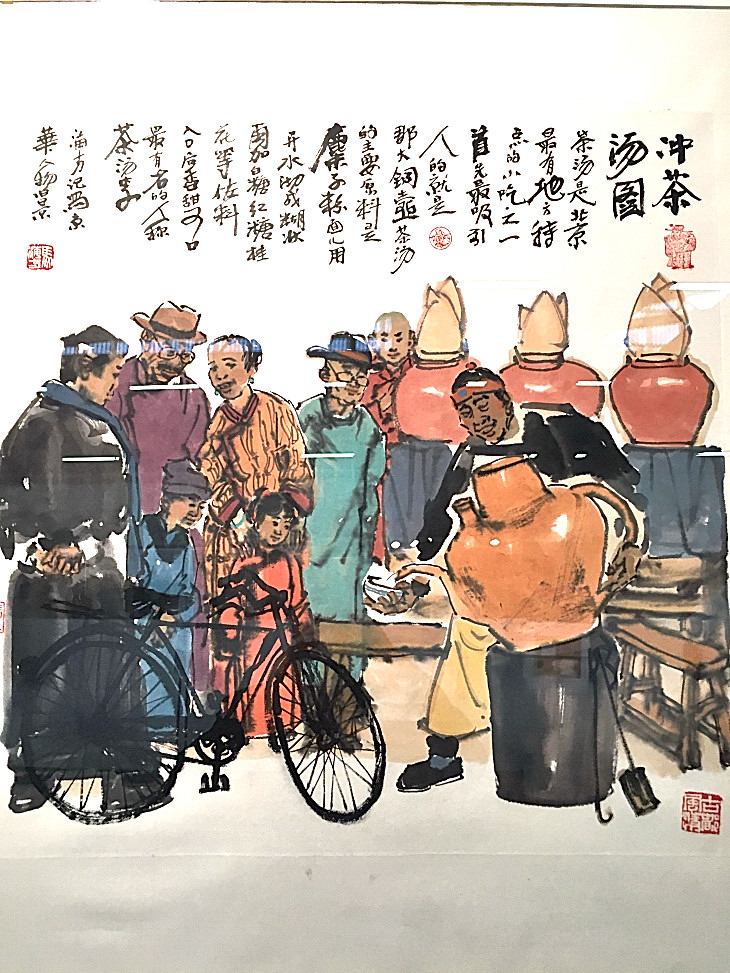 冲茶
汤圖
茶汤是北京
最有地方特
点的小吃之一
首先最吸引
人的就是
那大铜壶茶汤
的主要原料是
糜子粉面儿用
开水沏成糊状
再加白糖红糖桂
花等佐料
入口后香甜可口
最有名的人称
茶汤李
海方记写京
華人物
古都
風情